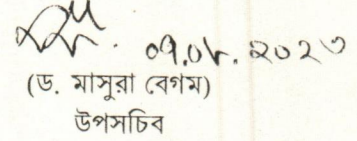 ০৭.০৮.২০২৩
(ড. মাসুরা বেগম)
উপসচিব